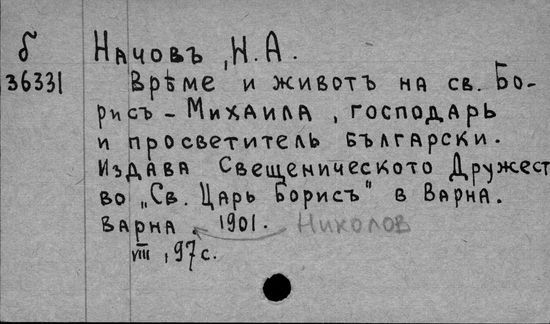 б
36331
Начовъ, Н. А.
Врѣме и животъ на св. Бо-
рисъ - Михаила, господарь
и просветитель български.
Издава Свещеническото Дружест
во „Св. Царь Борисъ" в Варна.
Варна. 1901. Николов
VIII, 97 с.